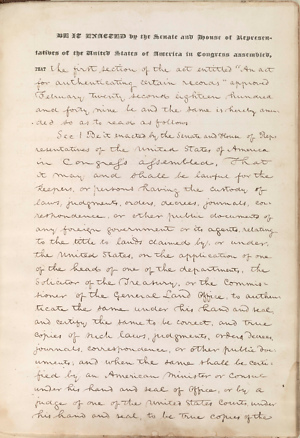 BE IT ENACTED by the Senate and House of Represen-
tatives of the United States of America in Congress assembled,
THAT the first section of the act entitled "An act
for authenticating certain records" approved
February twenty second eighteen hundred
and forty nine be and the same is hereby amen-
ded so as to read as follows
Sec 1 Be it enacted by the Senate and House of Rep-
resentatives of the United States of America
in Congress assembled, That
it may and shall be lawful for the
keepers, or persons having the custody of
laws, judgments, orders, decrees, journals, cor-
respondence, or other public documents of
any foreign government or its agents, relating
to the title to lands claimed by, or under,
the United States, on the application of one
of the heads of one of the departments, the
Solicitor of the Treasury, or the Commis-
sioner of the General Land Office, to authen-
ticate the same under his hand and seal,
and certify the same to be correct, and true
copies of such laws, judgments, orders, decrees,
journals, correspondence, or other public doc-
uments, and when the same shall be certi-
fied by an American Minister or Consul
under his hand and seal of Office, or by a
judge of one of the United States Courts under
his hand and seal, to be true copies of the